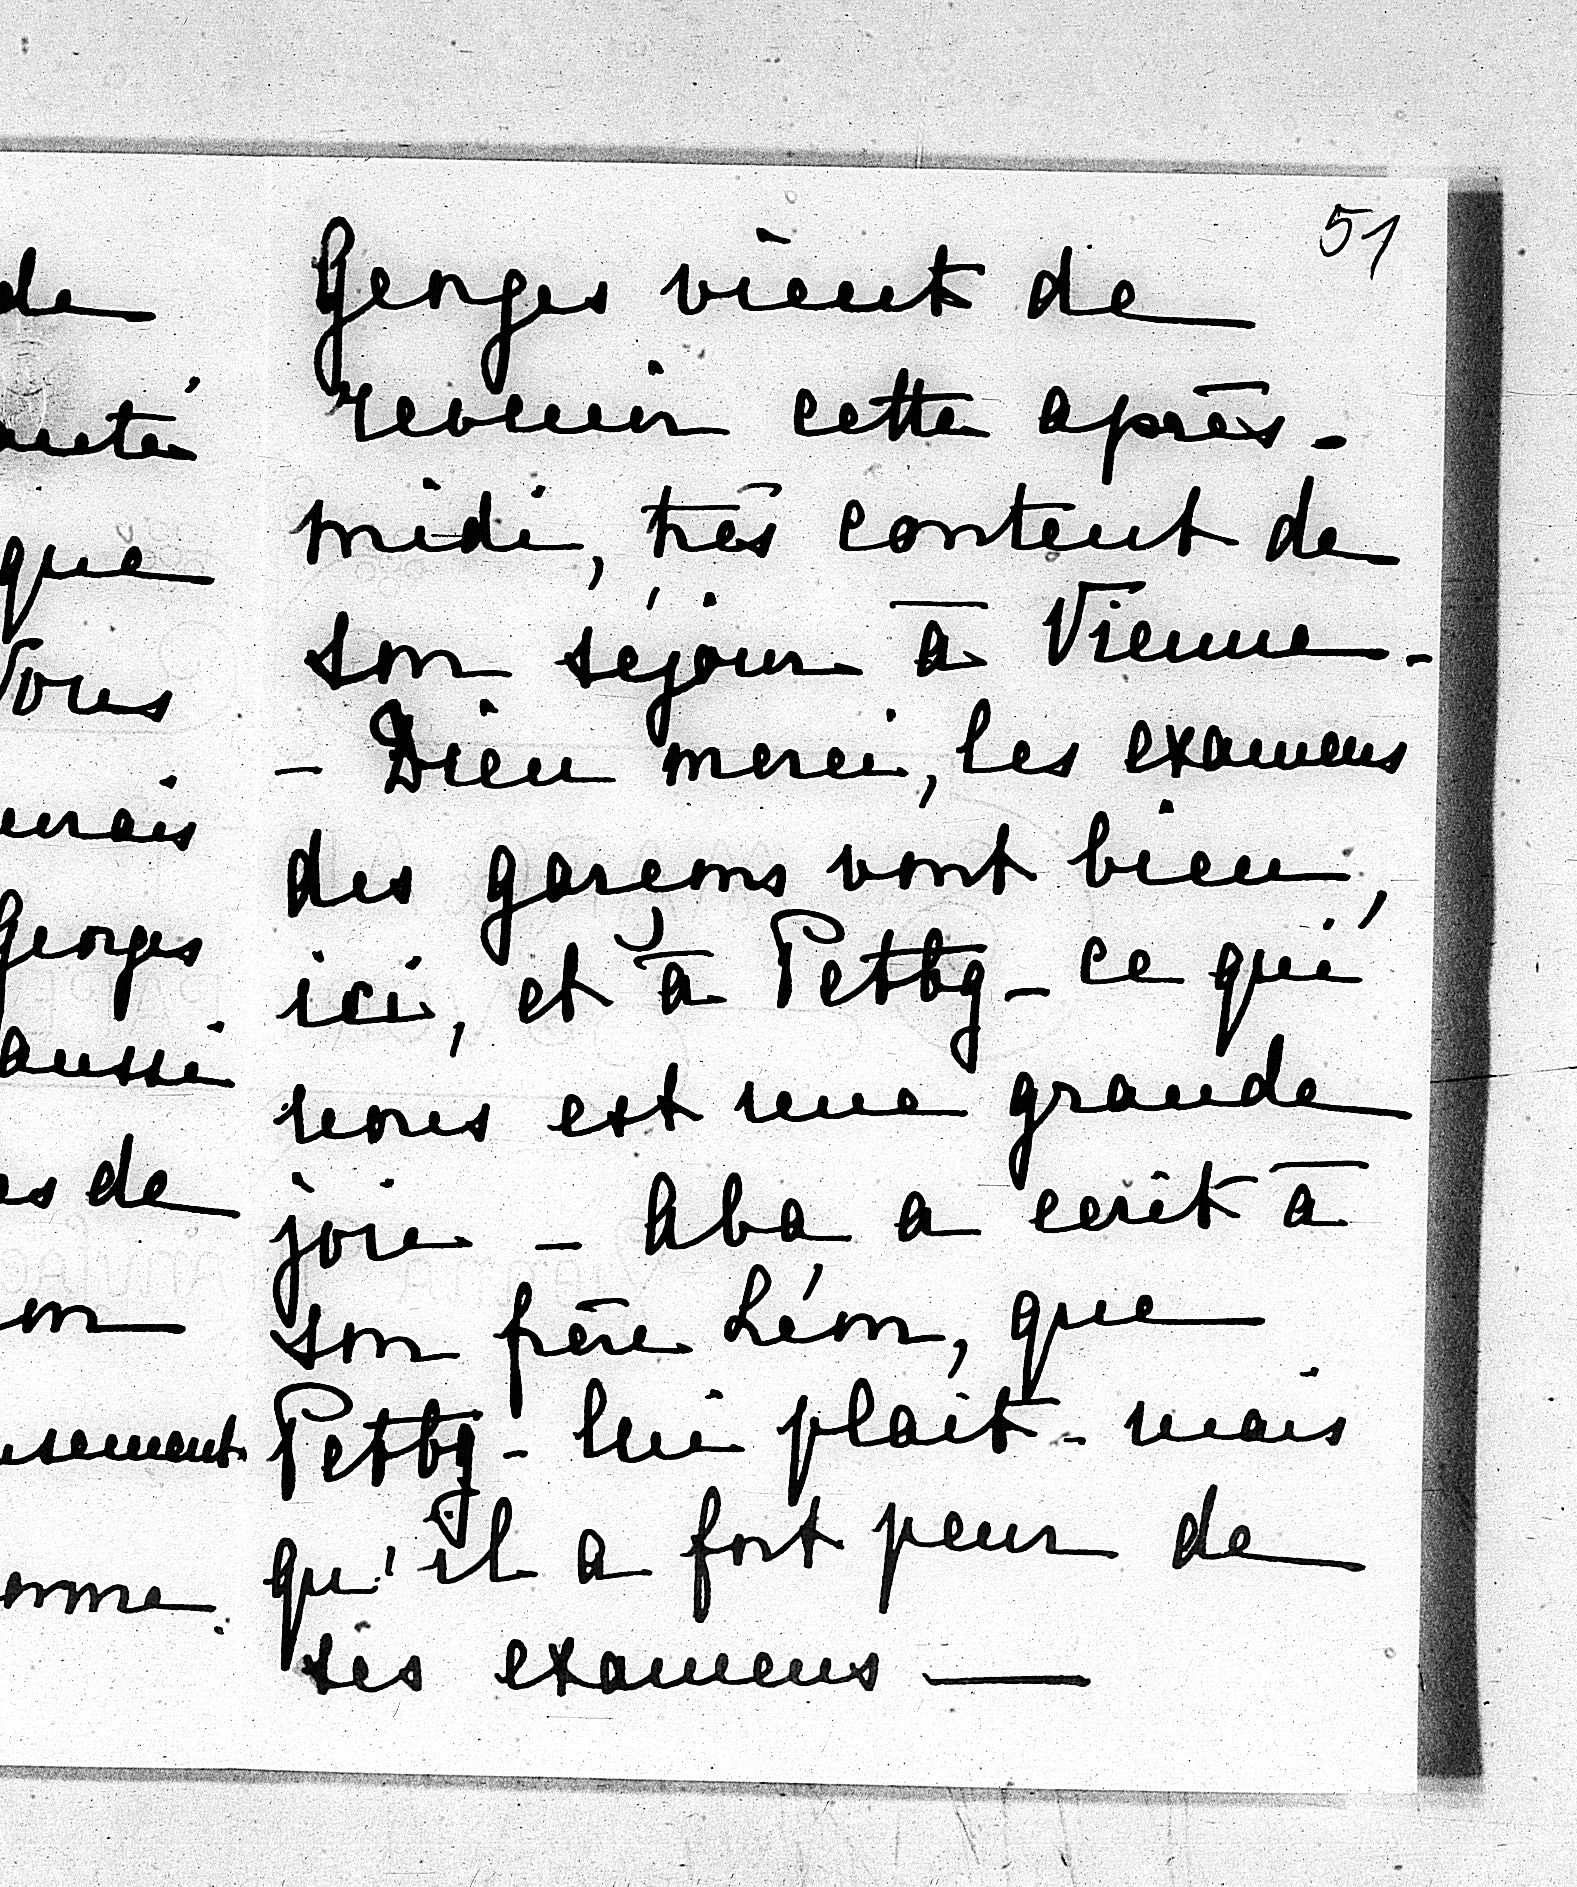 51
Georges vient de
revenir cette après-
midi, très content de
son séjour à Vienne -
- Dieu merci, les examens
des garçons vont bien,
ici, et à Petbg - ce qui
nous est une grande
joie - Aba a ecrit à
son frère Léon, que
Petbg - lui plait - mais
qu'il a fort peur de
ses examens —
de
que
Vous
Georges
aussi
de